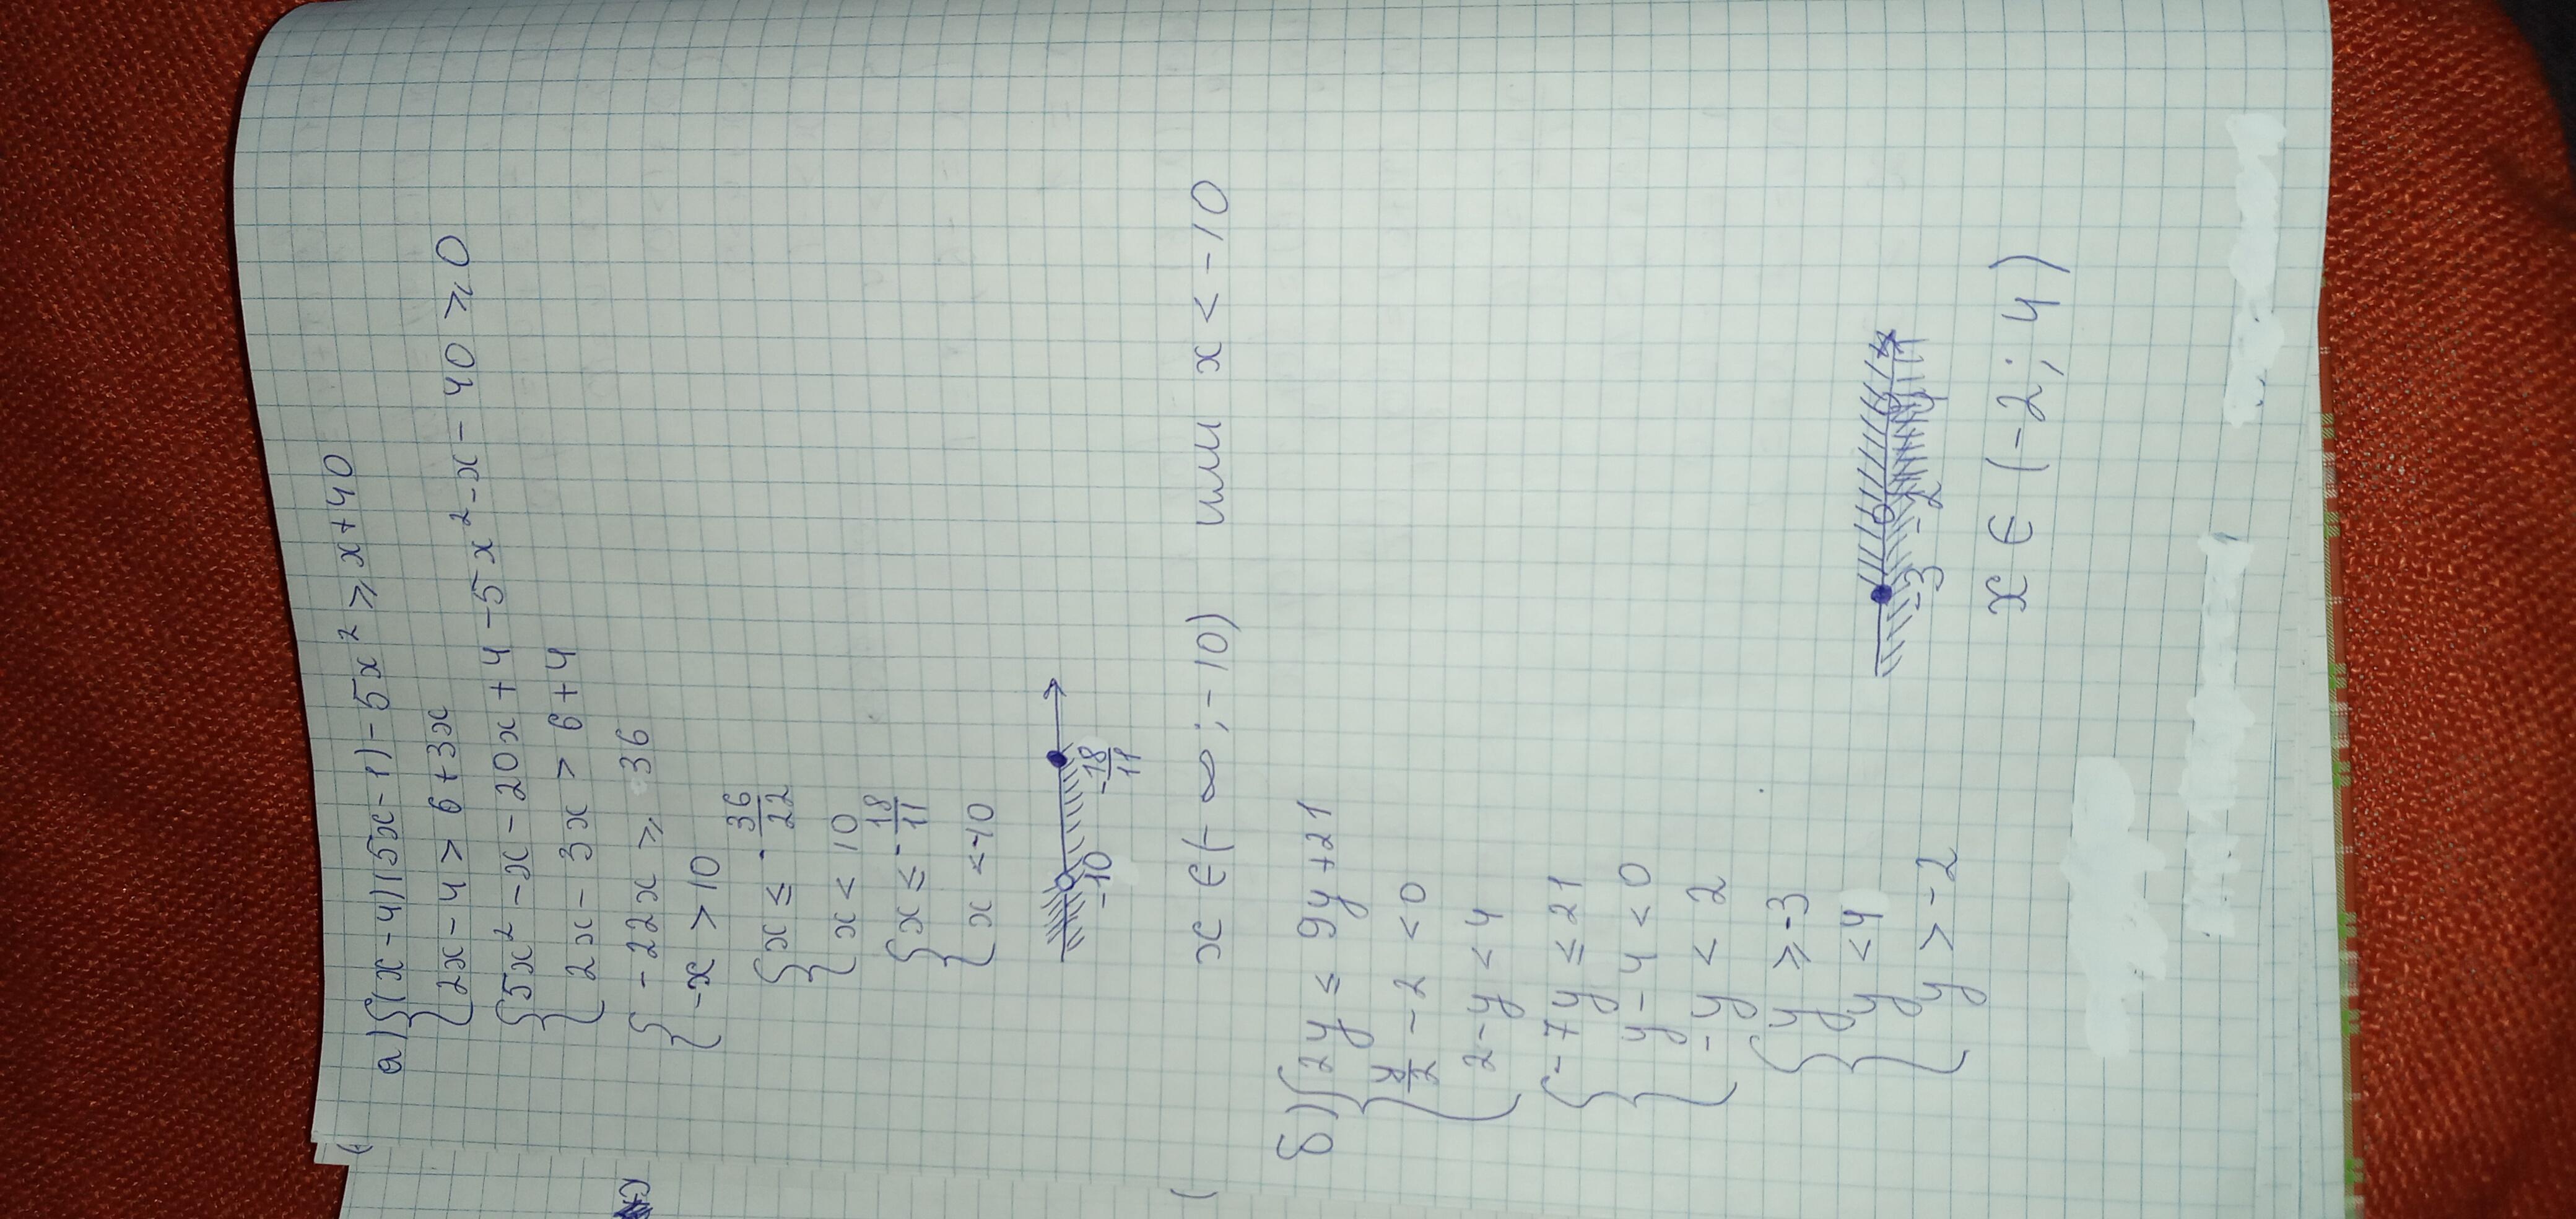 а) { (x-4)(5x-1)-5x² ⩾ x+40
2x-4 > 6+3x
{ 5x²-x-20x+4-5x²-x-40 ⩾ 0
2x-3x > 6+4
{ -22x ⩾ 36
-x > 10
{ x ≤ -36/22
x < 10
{ x ≤ -18/11
x < -10
-10 -18/11
x ∈ (-∞; -10) или x < -10
б) { 2y ≤ 9y+21
y/2 - 2 < 0
2-y < 4
{ -7y ≤ 21
y-4 < 0
-y < 2
{ y ⩾ -3
y < 4
y > -2
-3 -2 4
x ∈ (-2; 4)